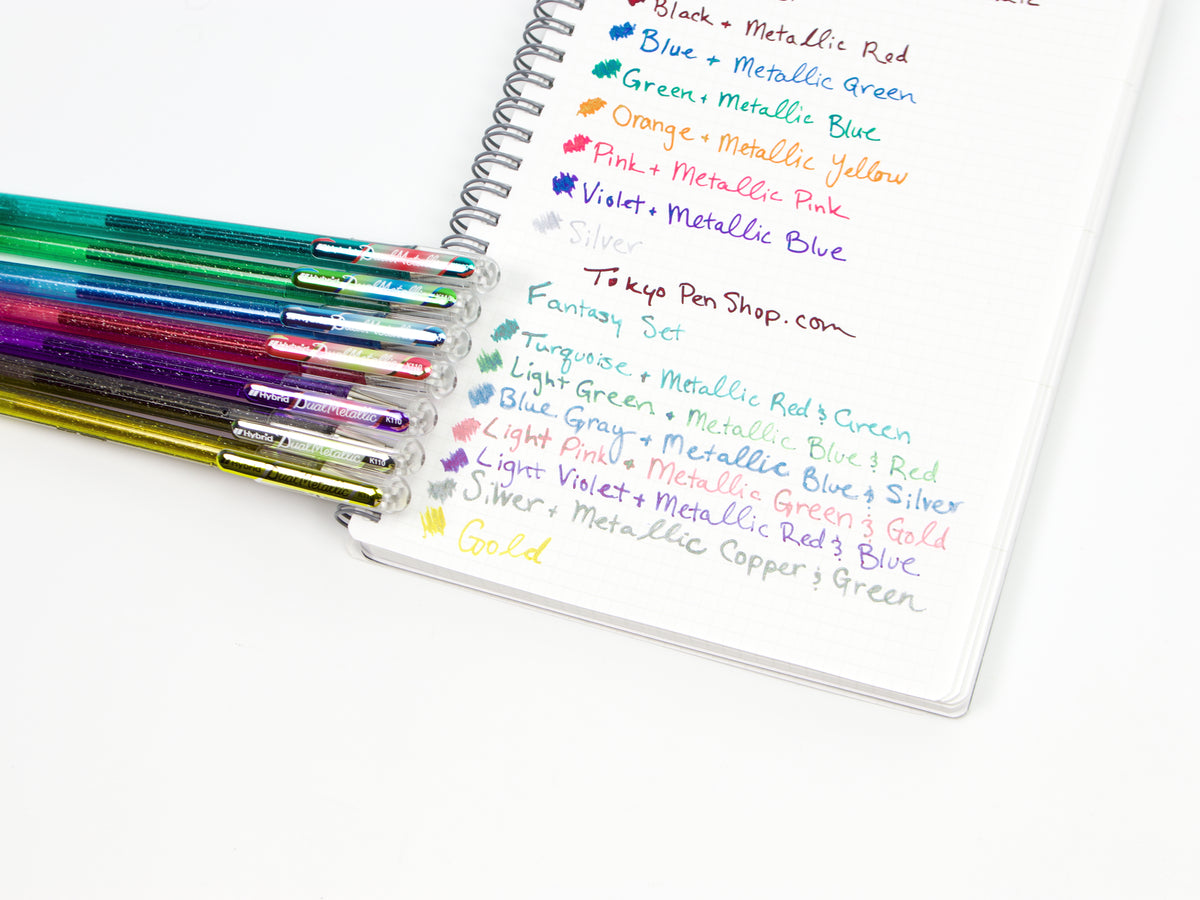 Black + Metallic Red
Blue + Metallic Green
Green + Metallic Blue
Orange + Metallic Yellow
Pink + Metallic Pink
Violet + Metallic Blue
Silver
Tokyo Pen Shop.com
Fantasy Set
Turquoise + Metallic Red & Green
Light Green + Metallic Blue & Red
Blue Gray + Metallic Blue & Silver
Light Pink + Metallic Green & Gold
Light Violet + Metallic Red & Blue
Silver + Metallic Copper & Green
Gold
DualMetallic
Hybrid DualMetallic
DualMetallic
Hybrid DualMetallic K110
Hybrid DualMetallic K110
Hybrid DualMetallic K110
Hybrid DualMetallic